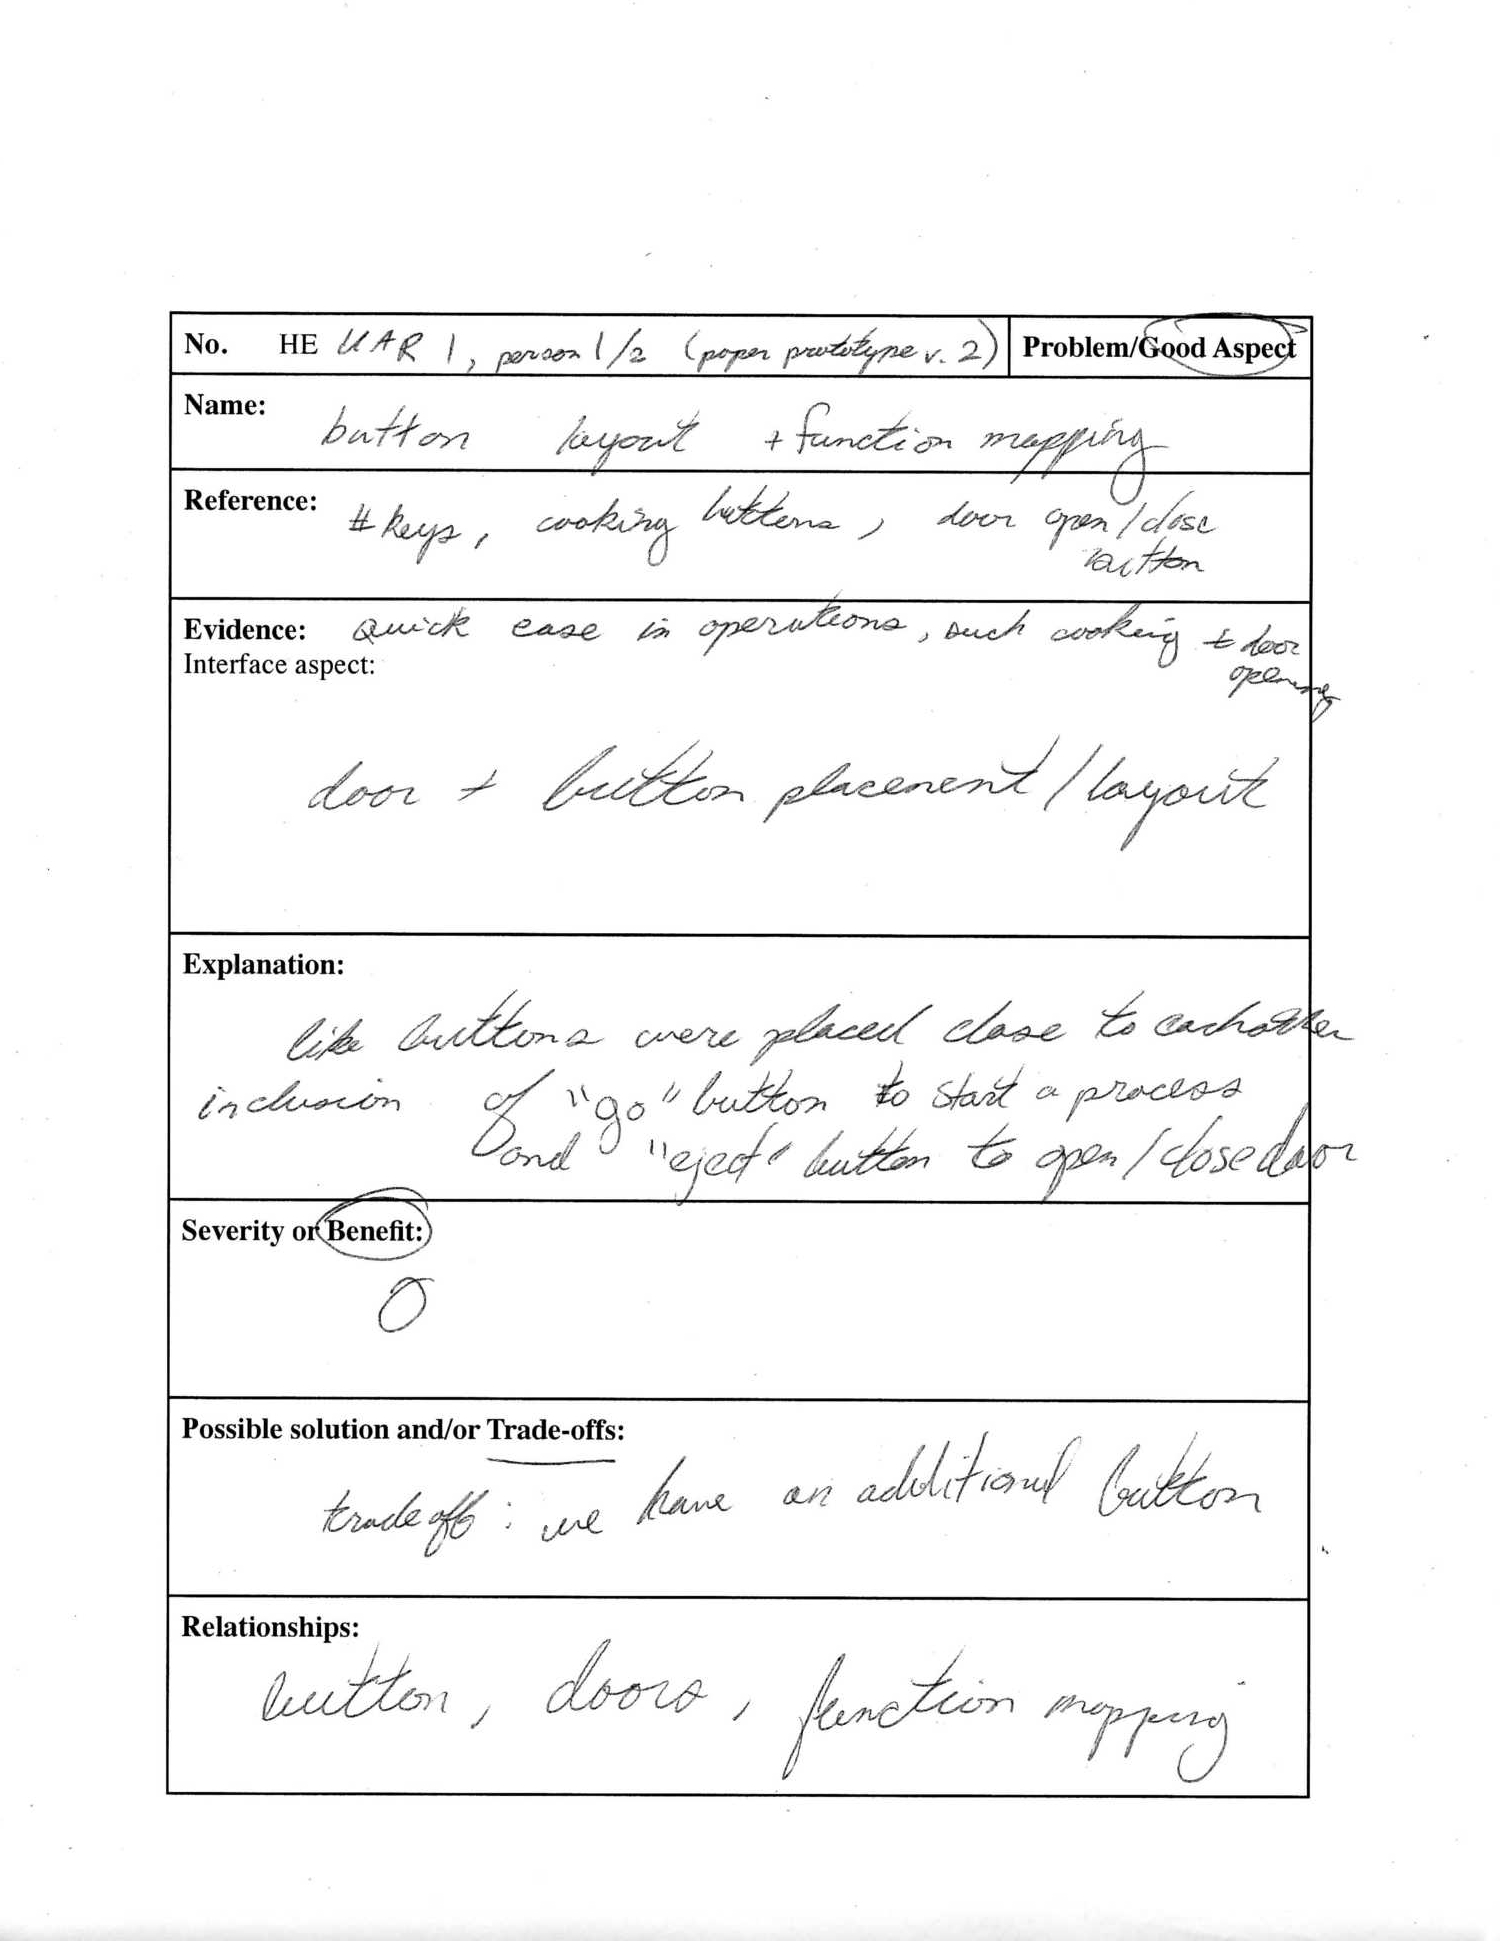 No. HE UAR 1, person 1/2 (paper prototype v. 2) Problem/Good Aspect
Name:
button layout + function mapping
Reference: # keys, cooking buttons, door open/close
button
Evidence: Quick ease in operations, such cooking + door
Interface aspect: opening
door + button placement/layout
Explanation:
like buttons were placed close to eachother
inclusion of "go" button to start a process
and "eject" button to open/close door
Severity or Benefit:
0
Possible solution and/or Trade-offs:
trade off: we have an additional button
Relationships:
button, doors, function mapping